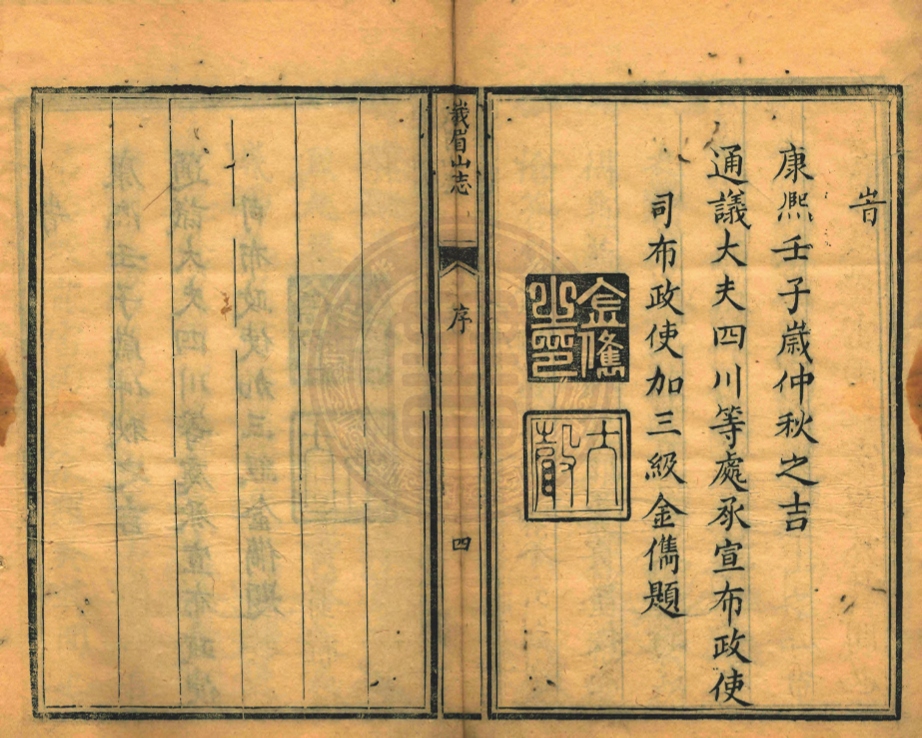 旹
康熙壬子歲仲秋之吉
通議大夫四川等處承宣布政使
司布政使加三級金儁題
金儁
之印
峩眉山志
序
四